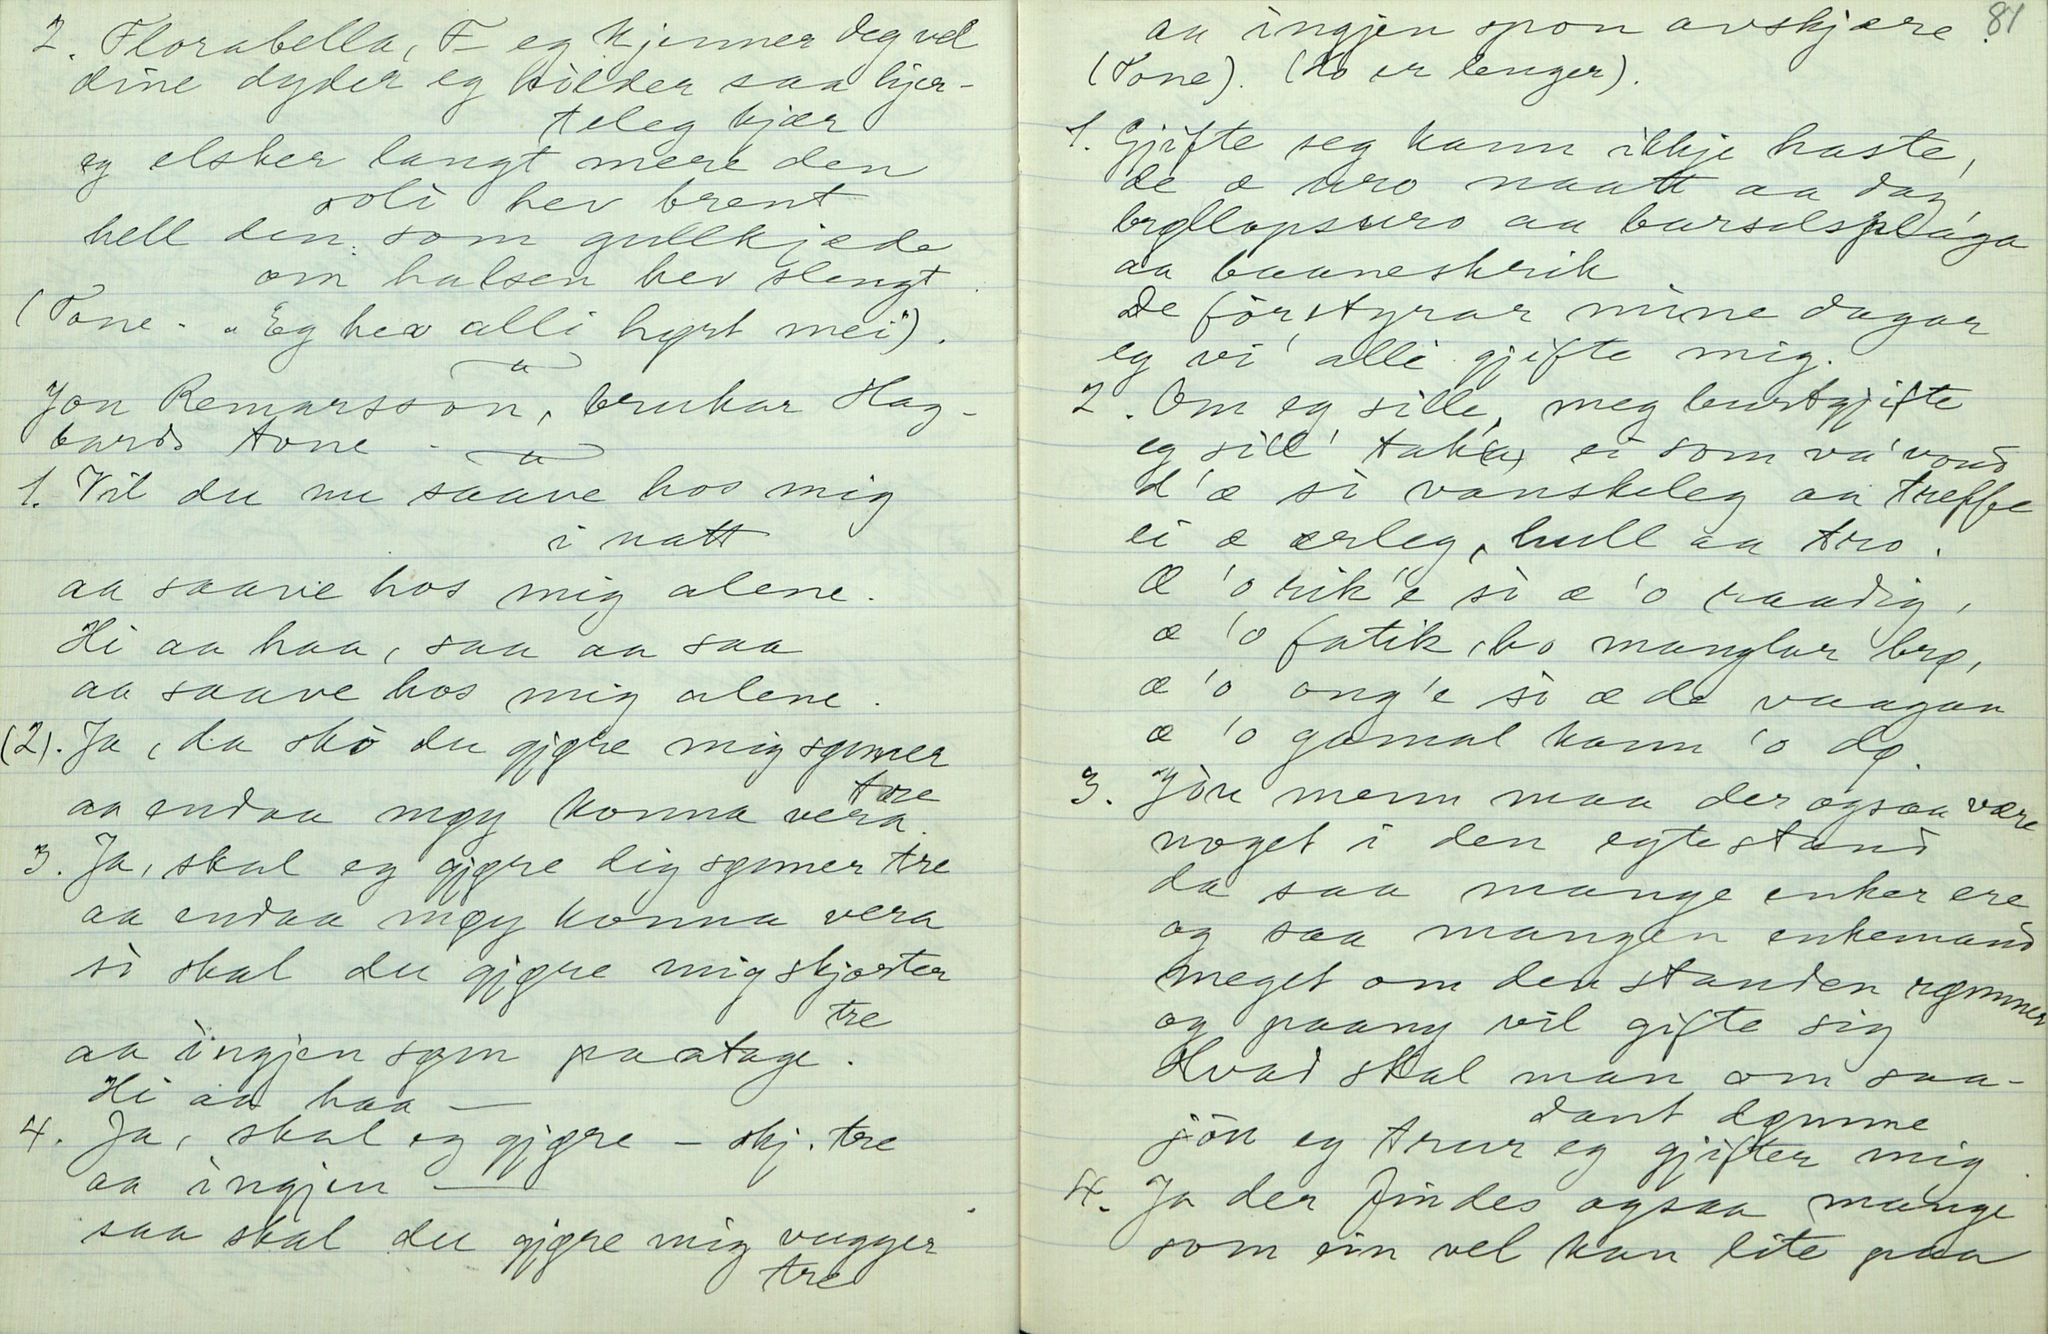 2. Florabella, F— eg kjenner deg vel
dine dyder eg hölder saa hjer-
teleg kjær
eg elsker langt mere den
soli hev brent
hell den som gullkjæde
om halsen hev slengt.
(Tone - "Eg hev alli hørt mei").
Jon Remarsson, brukar Hag-
bards tone -
1. Vil du nu saave hos mig
i natt
aa saave hos mig alene.
Hi aa haa, saa aa saa
aa saave hos mig alene.
(2). Ja, da skò du gjøre mig sønner
tre
aa endaa møy konna vera.
3. Ja, skal eg gjøre dig sønner tre
aa endaa møy konna vera
si skal du gjøre mig skjorter
tre
aa ingjen søm paatage.
Hi aa haa —
4. Ja, skal eg gjøre — skj. tre
aa ingjen —
saa skal du gjøre mig vugger
tre
81
aa ingjen spon avskjære.
(Tone). (Ho er lenger).
1. Gjifte seg kann ikkje haste,
de æ uro naatt aa dag,
brøllopsuro aa barselsplága
aa baaneskrik
De förstyrar mine dagar
eg vi' alli gjifte mig.
2. Om eg sille, meg burtgjifte
eg sill' tak(a) ei som va' vond
d'æ si vanskeleg aa treffe
ei æ ærleg, hull aa tro.
Æ 'o rik'e si æ 'o raadig,
æ 'o fatik, ho manglar brø,
æ 'o ong'e si æ de vaagaa
æ 'o gamal kann 'o dø.
3. Jòu menn maa der ogsaa være
noget i den egtestand
da saa mange enker ere
og saa mangen enkemand
meget om den standen rømmer
og paany vil gifte sig
Hvad skal man om saa-
dant dømme
jòu eg trur eg gjifter mig.
4. Ja der findes ogsaa mange
som ein vel kan lite paa